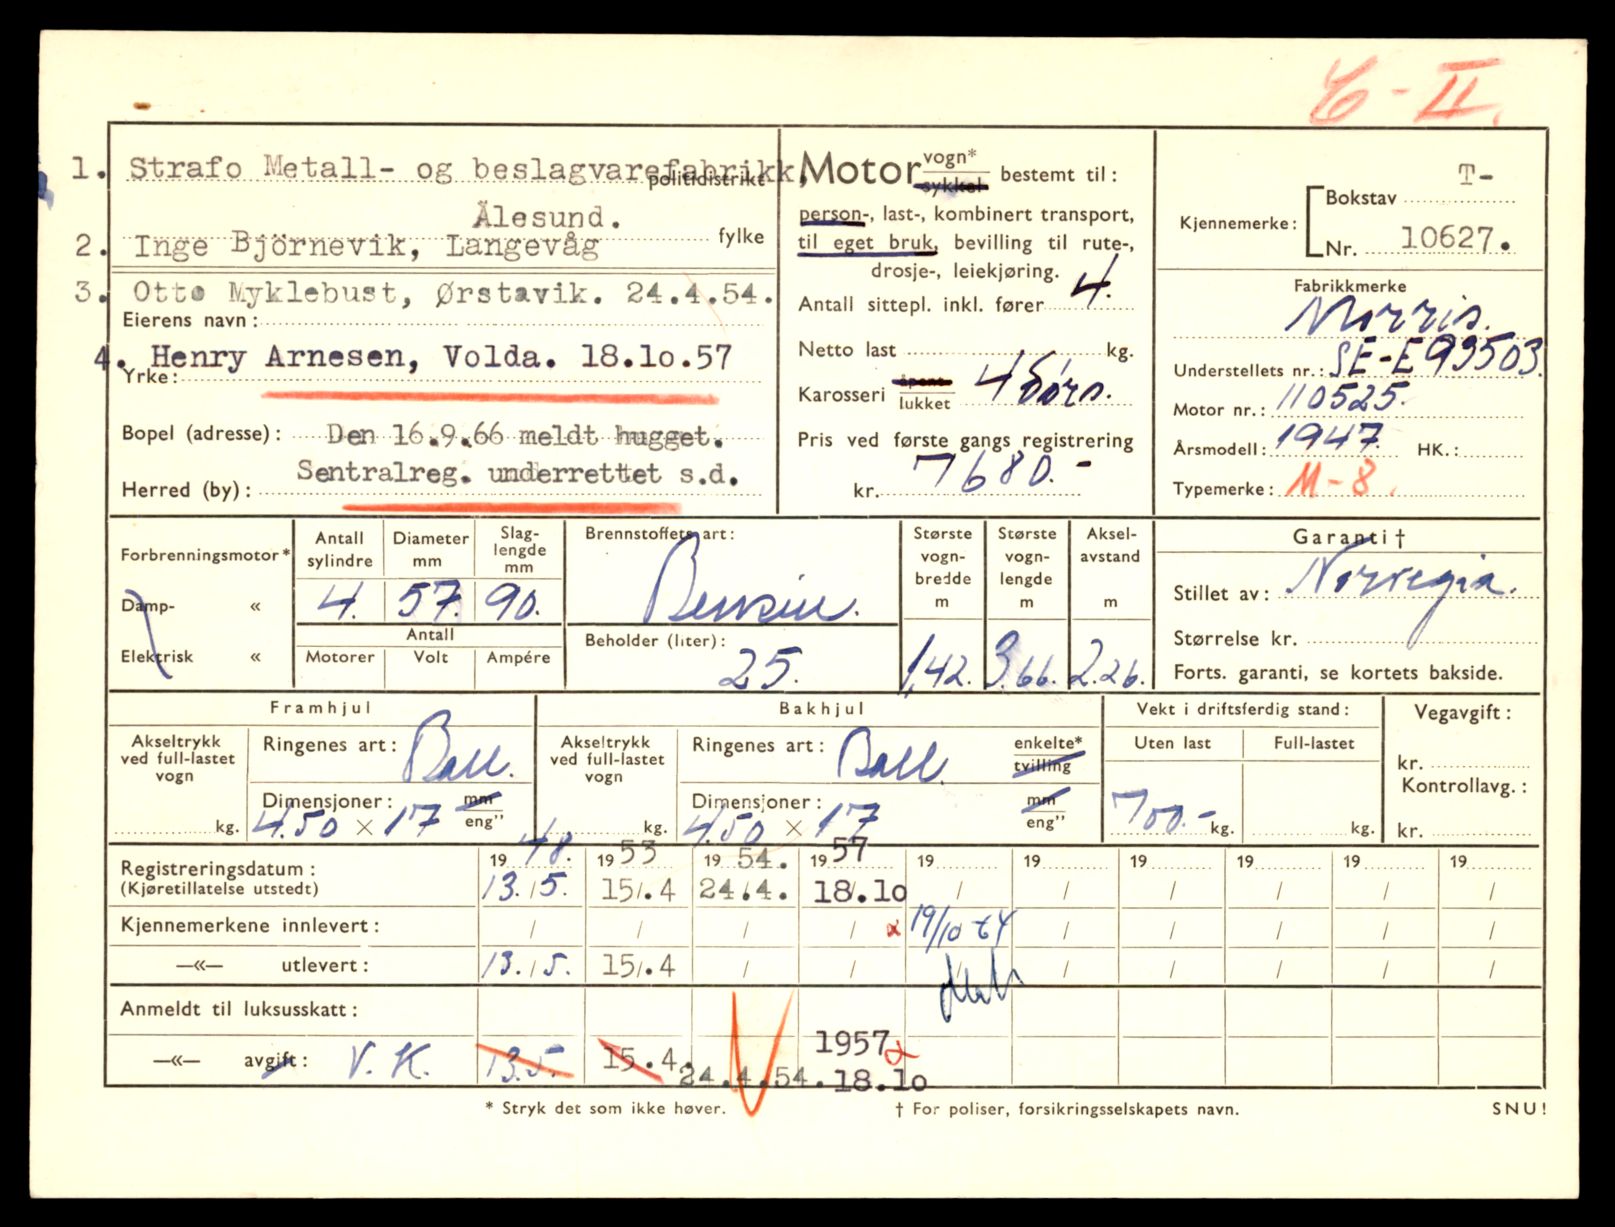 E-II.
1. Strafo Metall- og beslagvarefabrikk,
politidistrikt
Ålesund.
2. Inge Björnevik, Langevåg
fylke
3. Otto Myklebust, Ørstavik. 24.4.54.
Eierens navn:
4. Henry Arnesen, Volda. 18.10.57
Yrke:
Bopel (adresse): Den 16.9.66 meldt hugget.
Sentralreg. underrettet s.d.
Herred (by):
Motor vogn* sykkel bestemt til:
person-, last-, kombinert transport,
til eget bruk, bevilling til rute-,
drosje-, leiekjøring.
Antall sittepl. inkl. fører 4.
Netto last kg.
Karosseri åpent lukket 4 dørs.
Pris ved første gangs registrering
kr. 7680.-
Kjennemerke: Bokstav T-
Nr. 10627.
Fabrikkmerke
Morris.
Understellets nr.: SE-E93503.
Motor nr.: 110525.
Årsmodell: 1947. HK.:
Typemerke: M-8.
Forbrenningsmotor*
Damp- «
Elektrisk «
Antall sylindre 4.
Diameter mm 57.
Slag-lengde mm 90.
Antall
Motorer Volt Ampére
Brennstoffets art:
Bensin.
Beholder (liter):
25.
Største vogn-bredde m 1,42.
Største vogn-lengde m 3.66.
Aksel-avstand m 2.26.
Garanti †
Stillet av: Norvegia.
Størrelse kr.
Forts. garanti, se kortets bakside.
Framhjul
Akseltrykk ved full-lastet vogn
kg.
Ringenes art: Ball.
Dimensjoner: mm eng"
4.50 × 17
Bakhjul
Akseltrykk ved full-lastet vogn
kg.
Ringenes art: Ball. enkelte* tvilling
Dimensjoner: mm eng"
4.50 × 17
Vekt i driftsferdig stand:
Uten last Full-lastet
700.- kg. kg.
Vegavgift:
kr.
Kontrollavg.:
kr.
19 48. 19 53 19 54. 19 57 19 19 19 19 19 19
Registreringsdatum:
(Kjøretillatelse utstedt) 13./5. 15/.4 24/.4. 18/.10 / / / / / /
Kjennemerkene innlevert: / / / / 19/10 64 / / / / /
—«— utlevert: 13./5. 15/.4 / / / / / / / /
Anmeldt til luksusskatt:
—«— avgift: V.K. 13.5. 15.4. 24.4.54. 1957 18.10
* Stryk det som ikke høver.
† For poliser, forsikringsselskapets navn.
SNU!